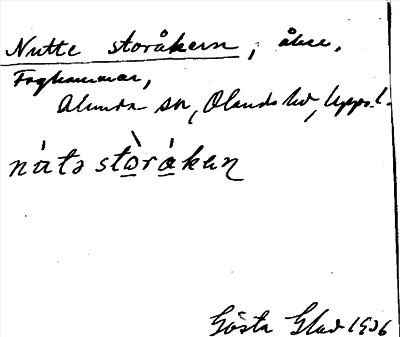 Nutte storåkern, åker,
Foghammar,
Alunda sn, Olands hd, Upps.l.
nùtə stòrákaɳ
Gösta Glad 1936